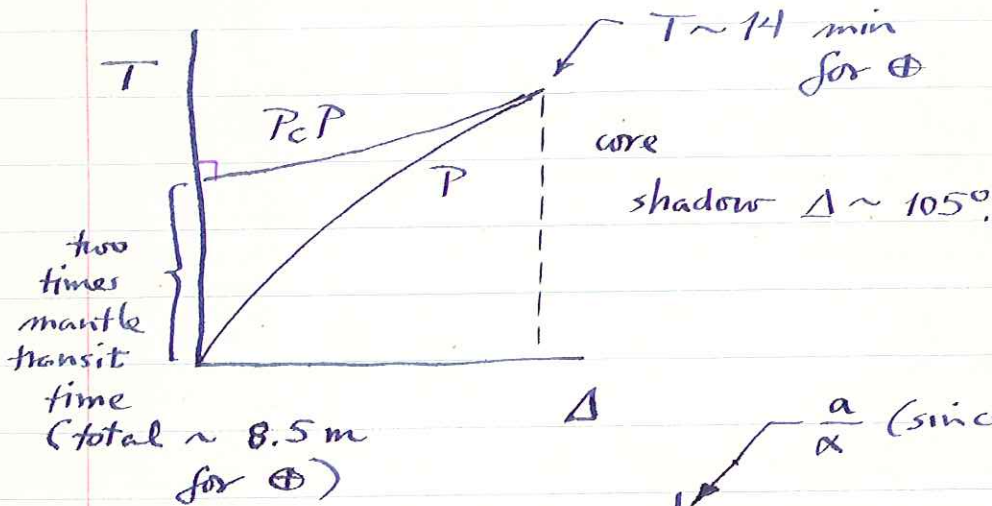 T
T ~ 14 min
for ⊕
PcP
P
core
shadow Δ ~ 105°.
two
times
mantle
transit
time
(total ~ 8.5 m
for ⊕)
Δ
a/α (sinc